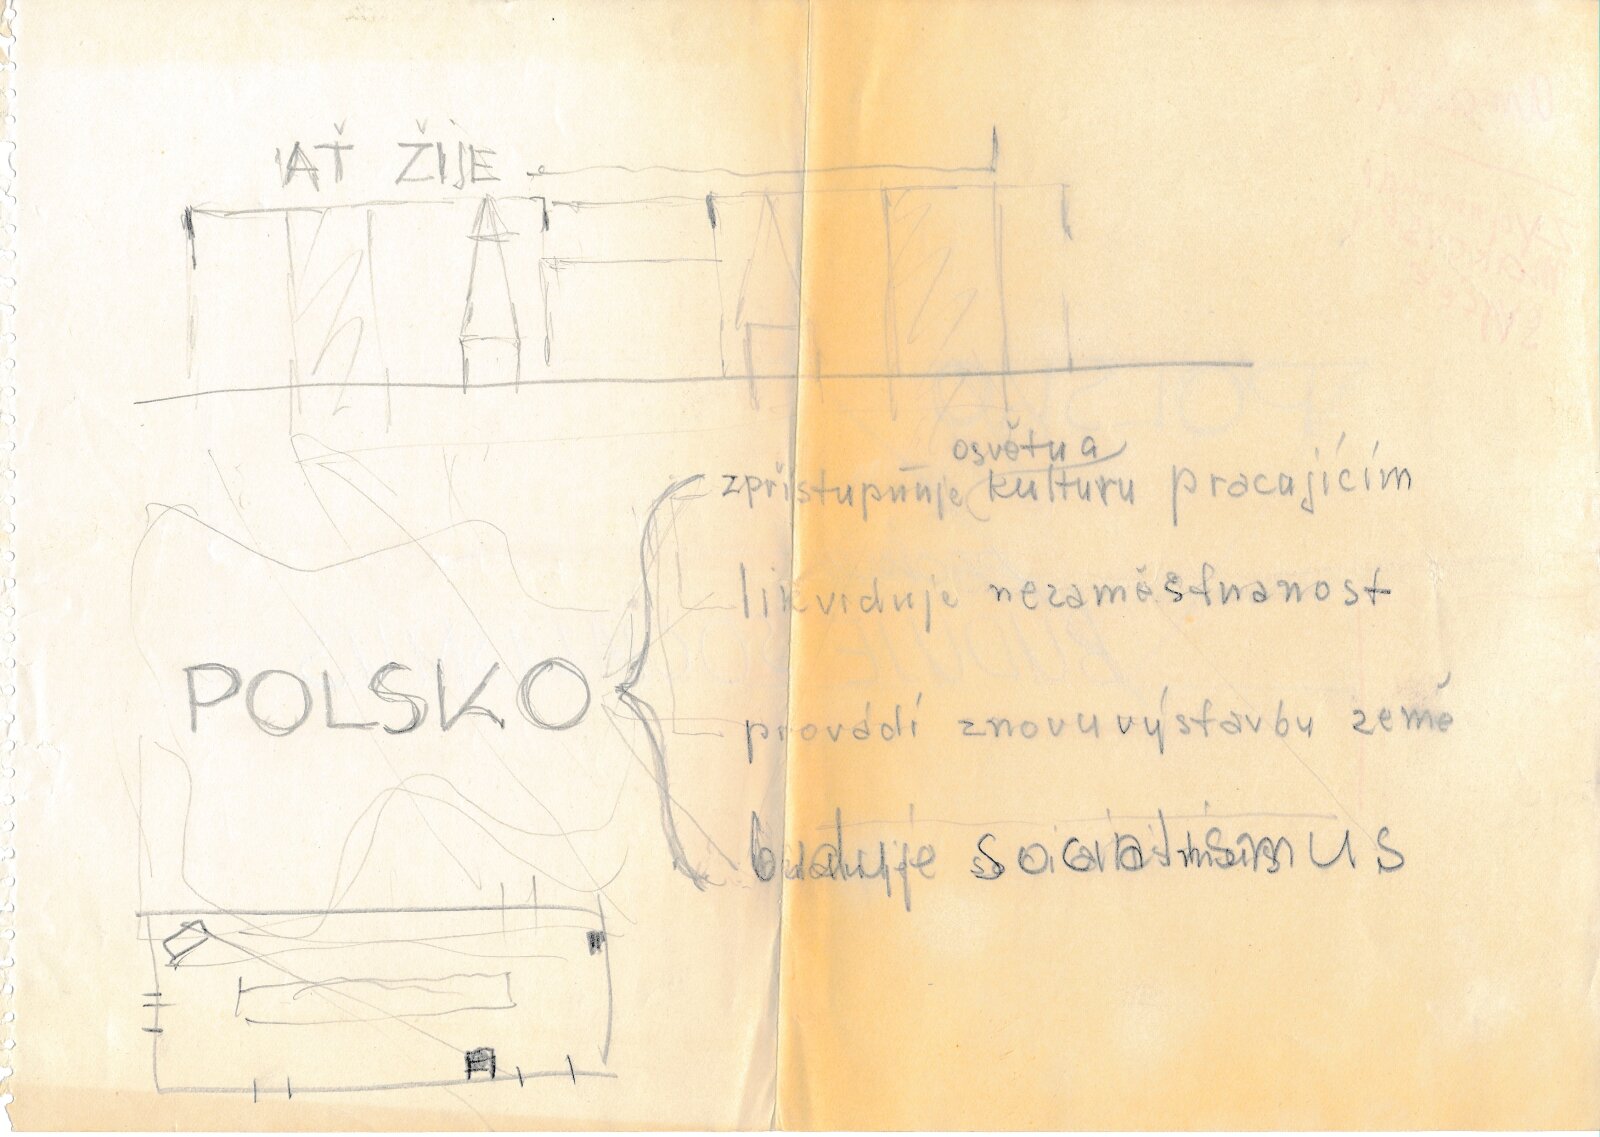 AŤ ŽIJE
osvětu a
zpřístupňuje kulturu pracujícím
likviduje nezaměstnanost
POLSKO
provádí znovuvýstavbu země
buduje socialismus